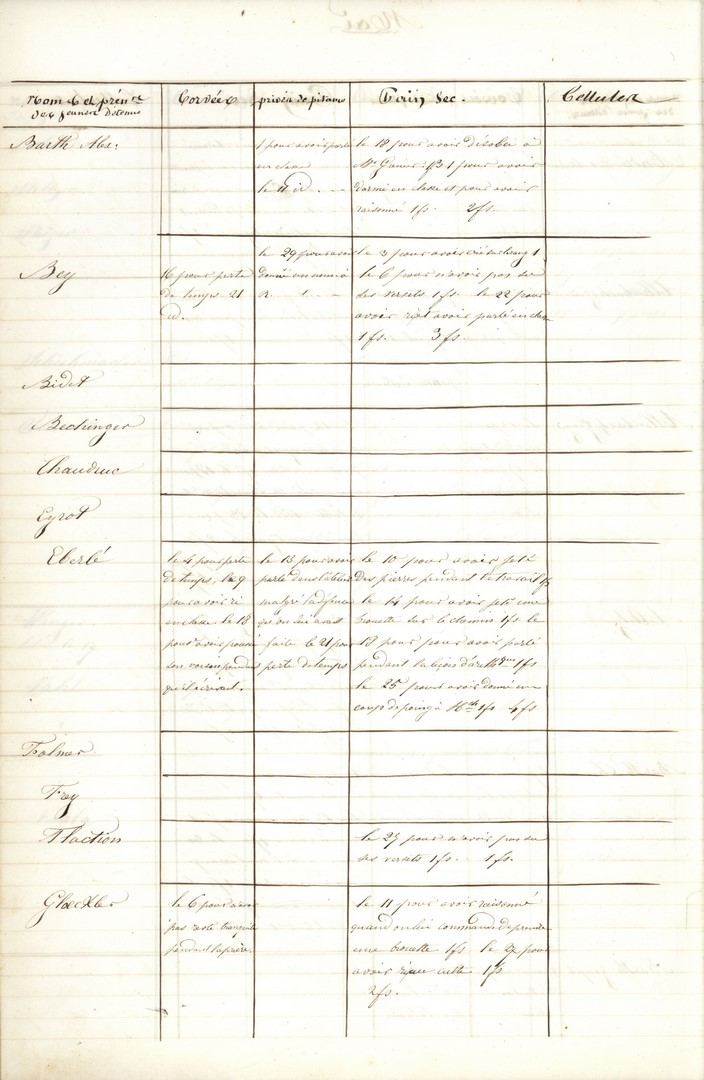 Mai
Noms et prén
des jeunes détenus
Corvées
privés de pitance
Pain Sec.
Cellules
Barth Alex:
1 pour avoir parlé
en classe
le 11 id.
le 18 pour avoir désobéi à
Mr 1 pour avoir
dormi en classe et pour avoir
raisonné 1 fs. 2 fs.
Bey
16 pour perte
de temps 21
id.
le 29 pour avoir
donné un à
R. 1
le 3 pour avoir 1
le 6 pour n'avoir pas su
ses versets 1 fs. le 22 pour
avoir avoir parlé en classe
1 fs. 3 fs.
Bidet
Bechinger
Chauduc
Eyrot
Eberlé
le 4 pour perte
de temps, le 9
pour avoir ri
en classe le 18
pour avoir poussé
son voisin pendant
qu'il écrivait.
le 13 pour avoir
parlé dans l'atelier
malgré la défense
qu'on lui avait
faite le 21 pour
perte de temps
le 10 pour avoir jeté
des pierres pendant le travail
le 14 pour avoir jeté une
brouette sur le chemin 1 fs le
18 pour pour avoir parlé
pendant la leçon d'arith 1 fs
le 25 pour avoir donné un
coup de poing à 1 fs 4 fs
Folmer
Frey
Flaction
le 27 pour n'avoir pas su
ses versets 1 fs. 1 fs.
Gloeckler
le 6 pour n'avoir
pas resté tranquille
pendant la prière.
le 11 pour avoir raisonné
quand on lui commande de prendre
une brouette 1 fs le pour
avoir 1 fs
2 fs.